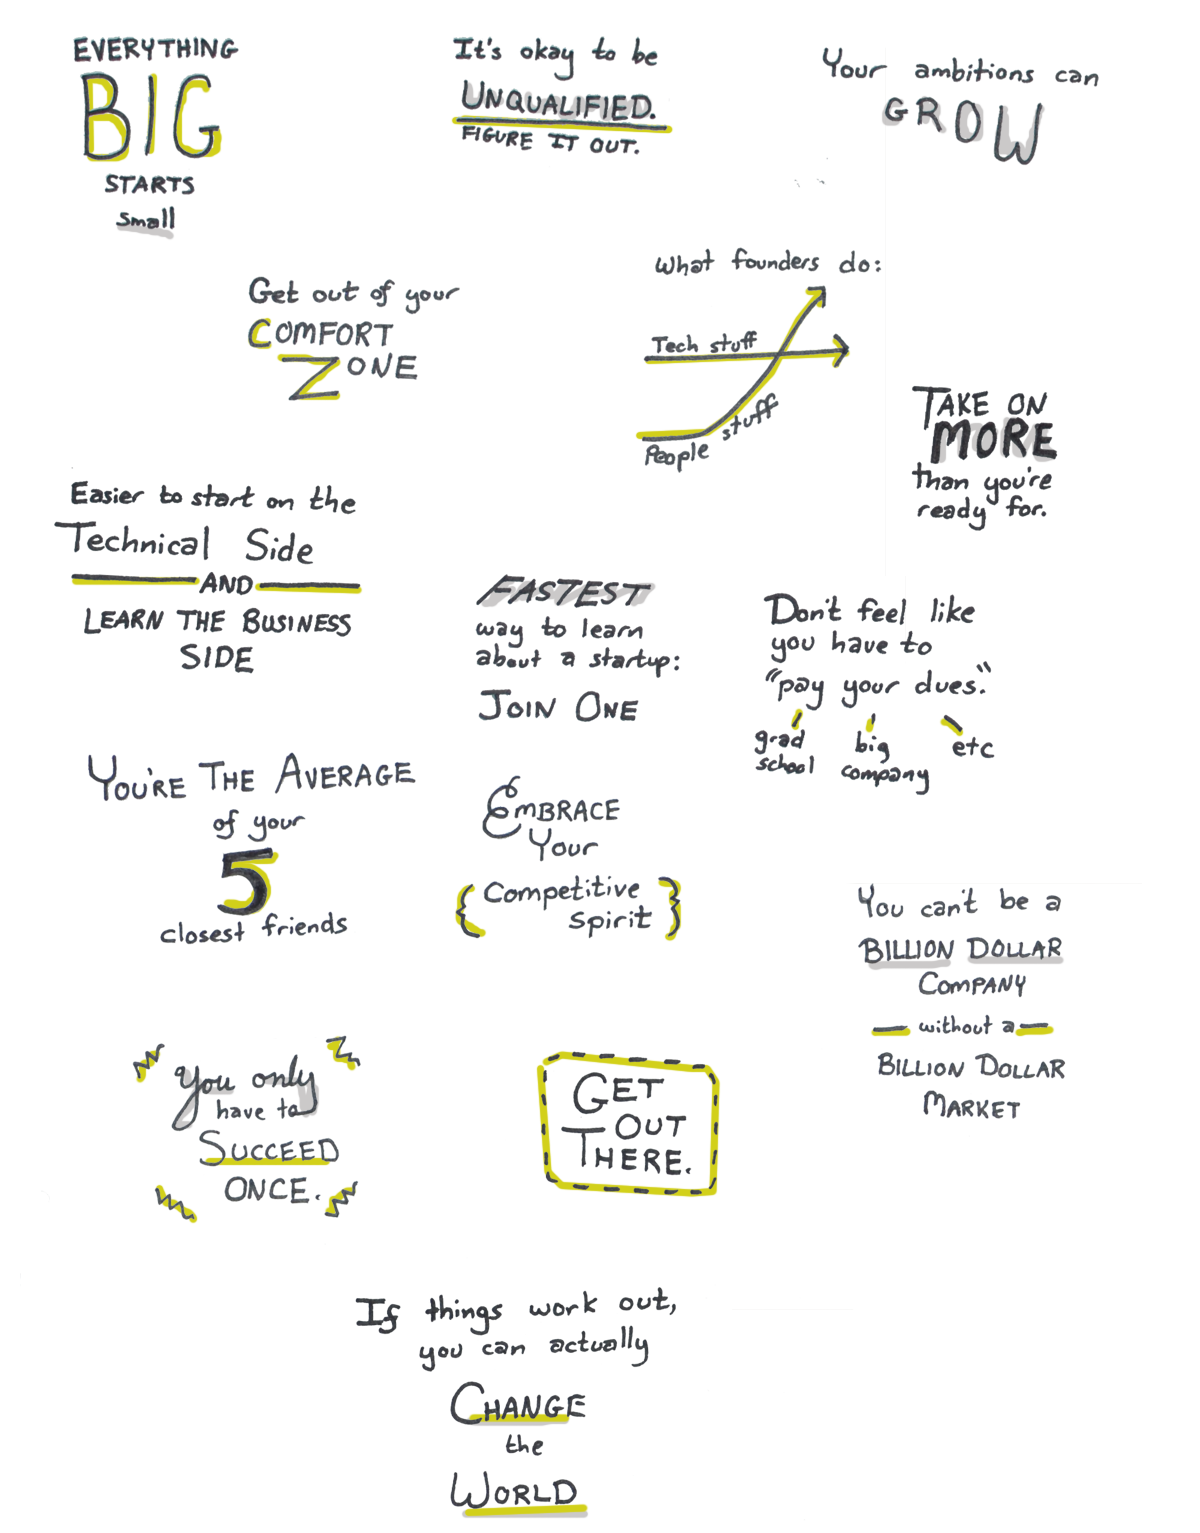 EVERYTHING
BIG
STARTS
small
It's okay to be
UNQUALIFIED.
FIGURE IT OUT.
Your ambitions can
GROW
Get out of your
COMFORT
ZONE
What founders do:
Tech stuff
People stuff
TAKE ON
MORE
than you're
ready for.
Easier to start on the
Technical Side
AND
LEARN THE BUSINESS
SIDE
FASTEST
way to learn
about a startup:
JOIN ONE
Don't feel like
you have to
"pay your dues."
grad
school
big
company
etc
YOU'RE THE AVERAGE
of your
5
closest friends
EMBRACE
Your
{ Competitive
Spirit }
You can't be a
BILLION DOLLAR
COMPANY
— without a —
BILLION DOLLAR
MARKET
You only
have to
SUCCEED
ONCE.
GET
OUT
THERE.
If things work out,
you can actually
CHANGE
the
WORLD